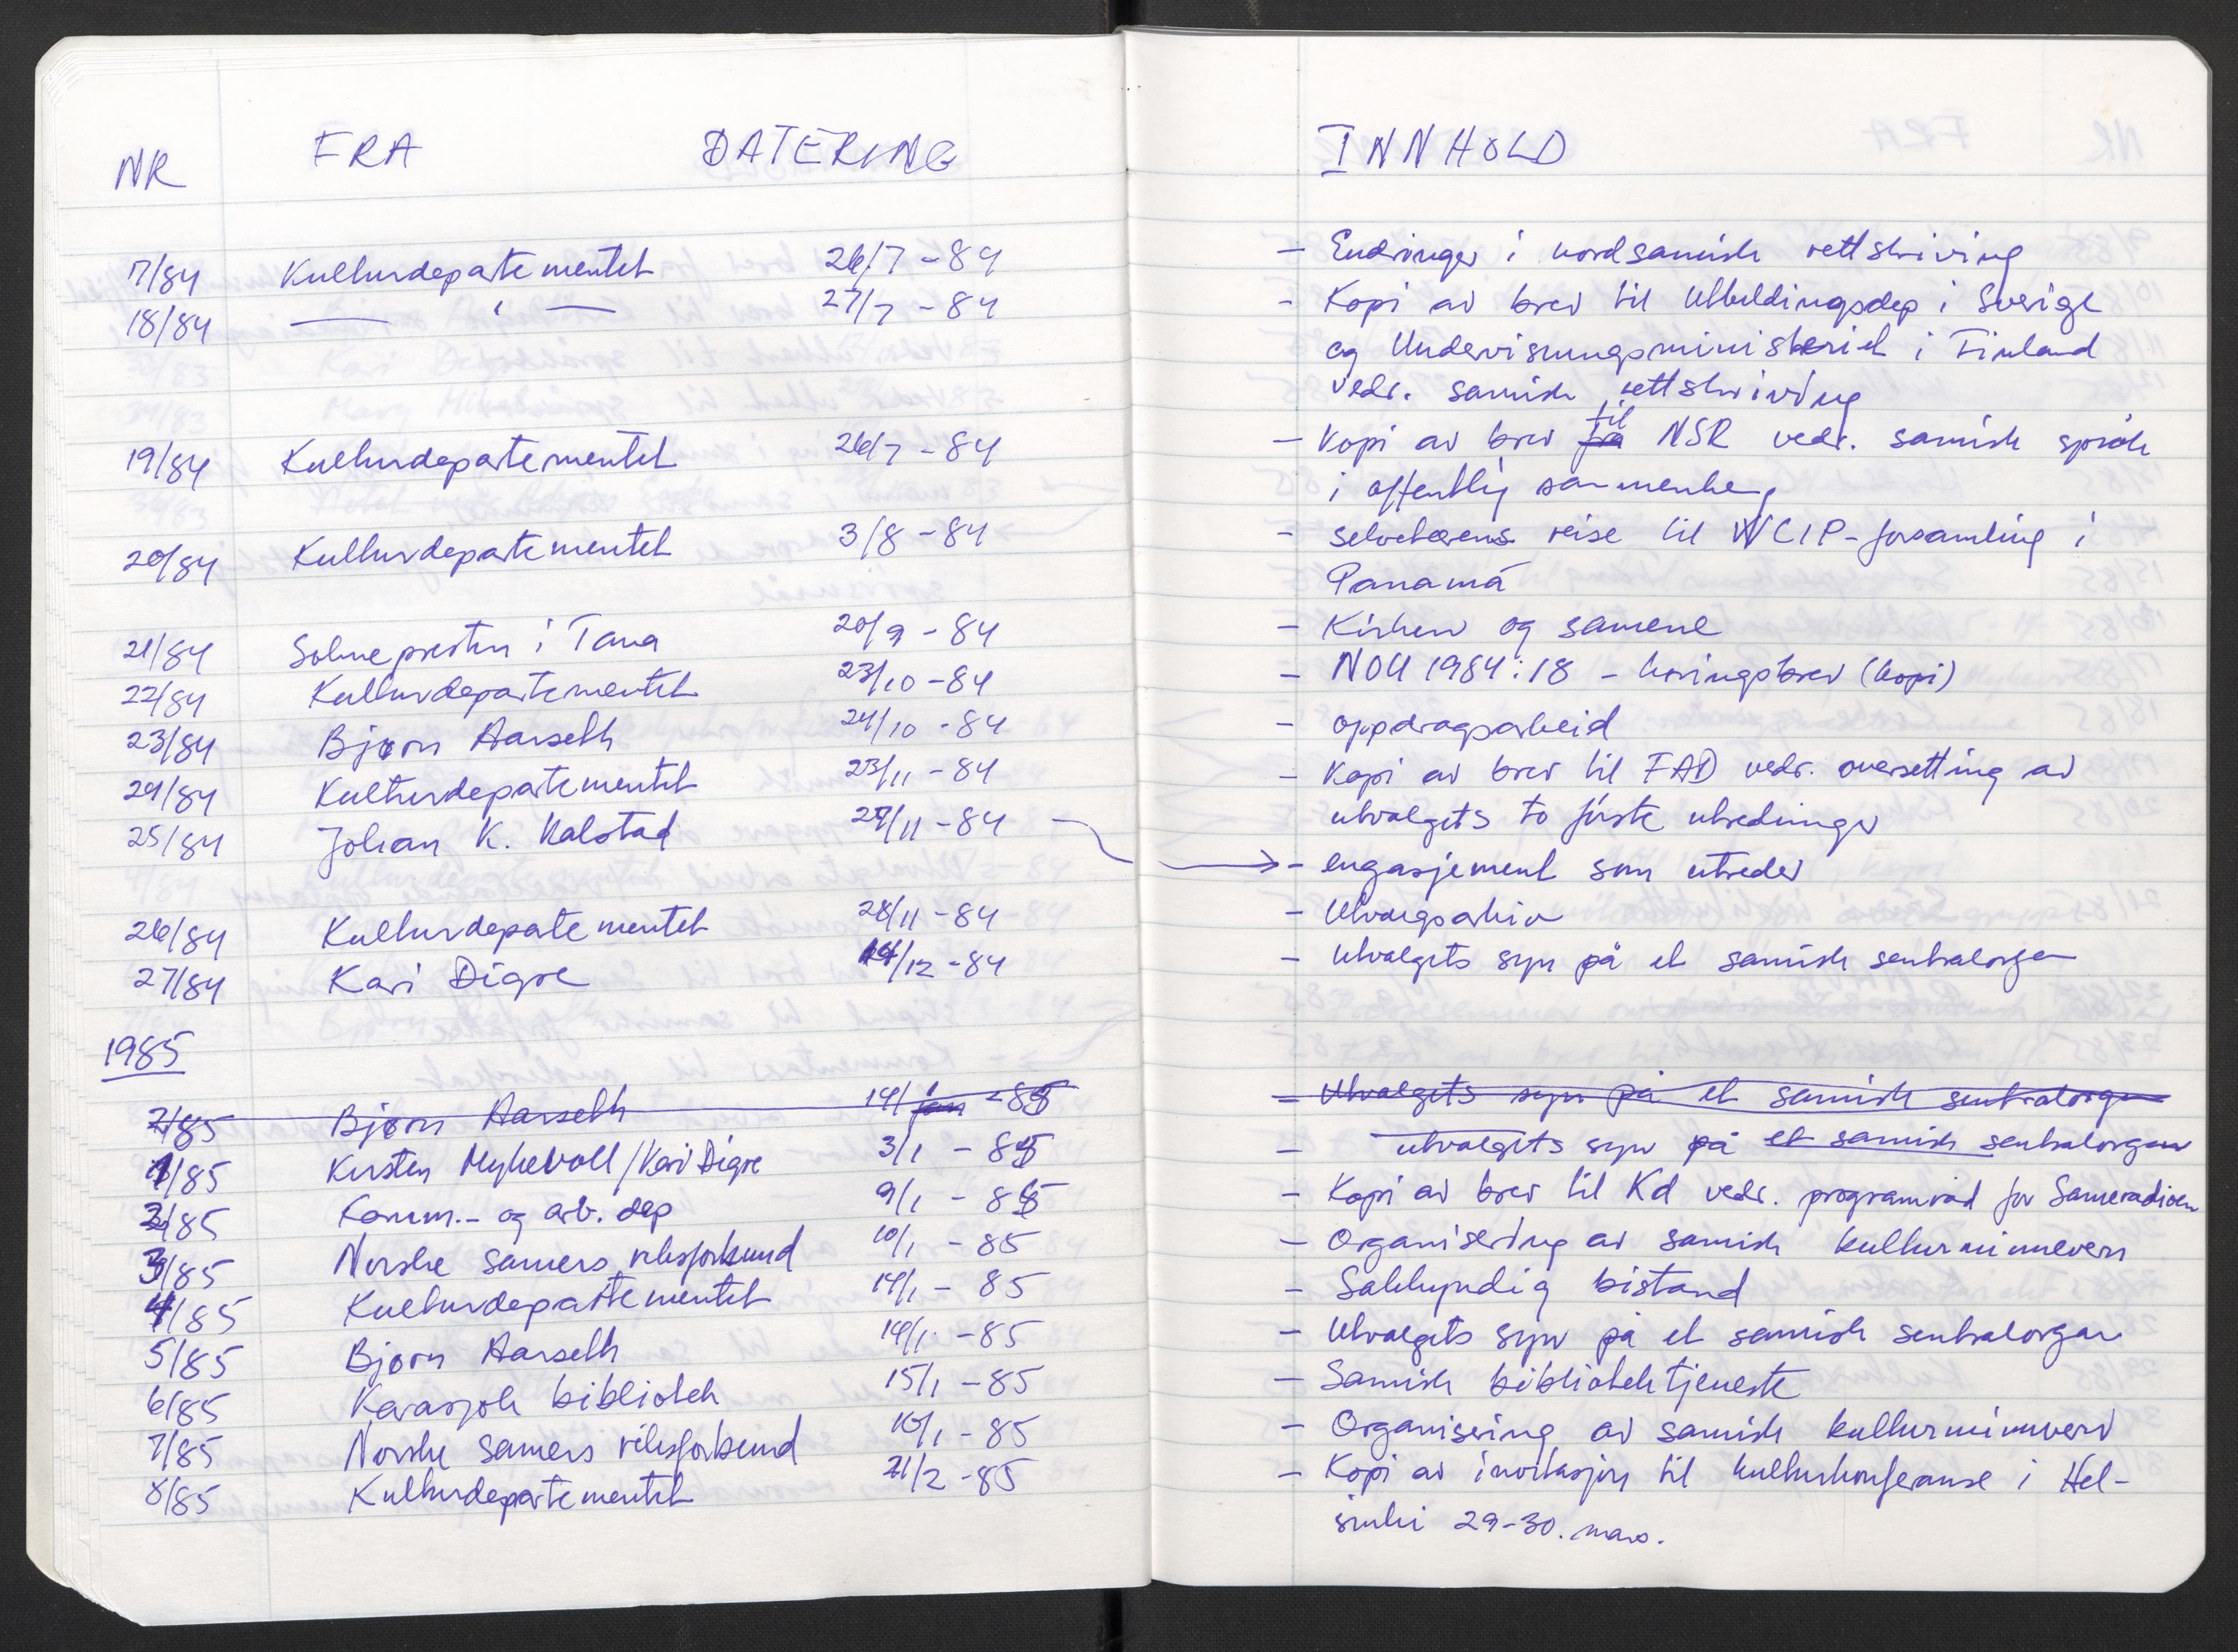 NR FRA DATERING
17/84 Kulturdepartementet 26/7-84
18/84 — " — 27/7-84
19/84 Kulturdepartementet 26/7-84
20/84 Kulturdepartementet 3/8-84
21/84 Soknepresten i Tana 20/9-84
22/84 Kulturdepartementet 23/10-84
23/84 Bjørn Aarseth 24/10-84
24/84 Kulturdepartementet 23/11-84
25/84 Johan K. Kalstad 27/11-84
26/84 Kulturdepartementet 28/11-84
27/84 Kari Digre 14/12-84
1985
2/85 Bjørn Aarseth 14/1 jan -85
1/85 Kirsten Myklevoll/Kari Digre 3/1-85
2/85 Komm.- og arb. dep 9/1-85
3/85 Norske samers riksforbund 10/1-85
4/85 Kulturdepartementet 14/1-85
5/85 Bjørn Aarseth 14/1-85
6/85 Karasjok bibliotek 15/1-85
7/85 Norske samers riksforbund 16/1-85
8/85 Kulturdepartementet 21/2-85
INNHOLD
- Endringer i nordsamisk rettskriving
- Kopi av brev til Utbildingsdep i Sverige
og Undervisningsministeriet i Finland
vedr. samisk rettskriving
- Kopi av brev fra til NSR vedr. samisk språk
i offentlig sammenheng
- selvoterens reise til WCIP-forsamling i
Panamá
- Kirken og samene
- NOU 1984:18 - høringsbrev (kopi)
- oppdragsarbeid
- Kopi av brev til FAD vedr. oversetting av
utvalgets to første utredninger
- engasjement som utreder
- Utvalgsarkiv
- Utvalgets syn på et samisk sentralorgan
- Utvalgets syn på et samisk sentralorgan
- utvalgets syn på et samisk sentralorgan
- Kopi av brev til Kd vedr. programråd for Sameradioen
- Organisering av samisk kulturminnevern
- Sakkyndig bistand
- Utvalgets syn på et samisk sentralorgan
- Samisk bibliotektjeneste
- Organisering av samisk kulturminnevern
- Kopi av invitasjon til kulturkonferanse i Hel-
sinki 29-30. mars.